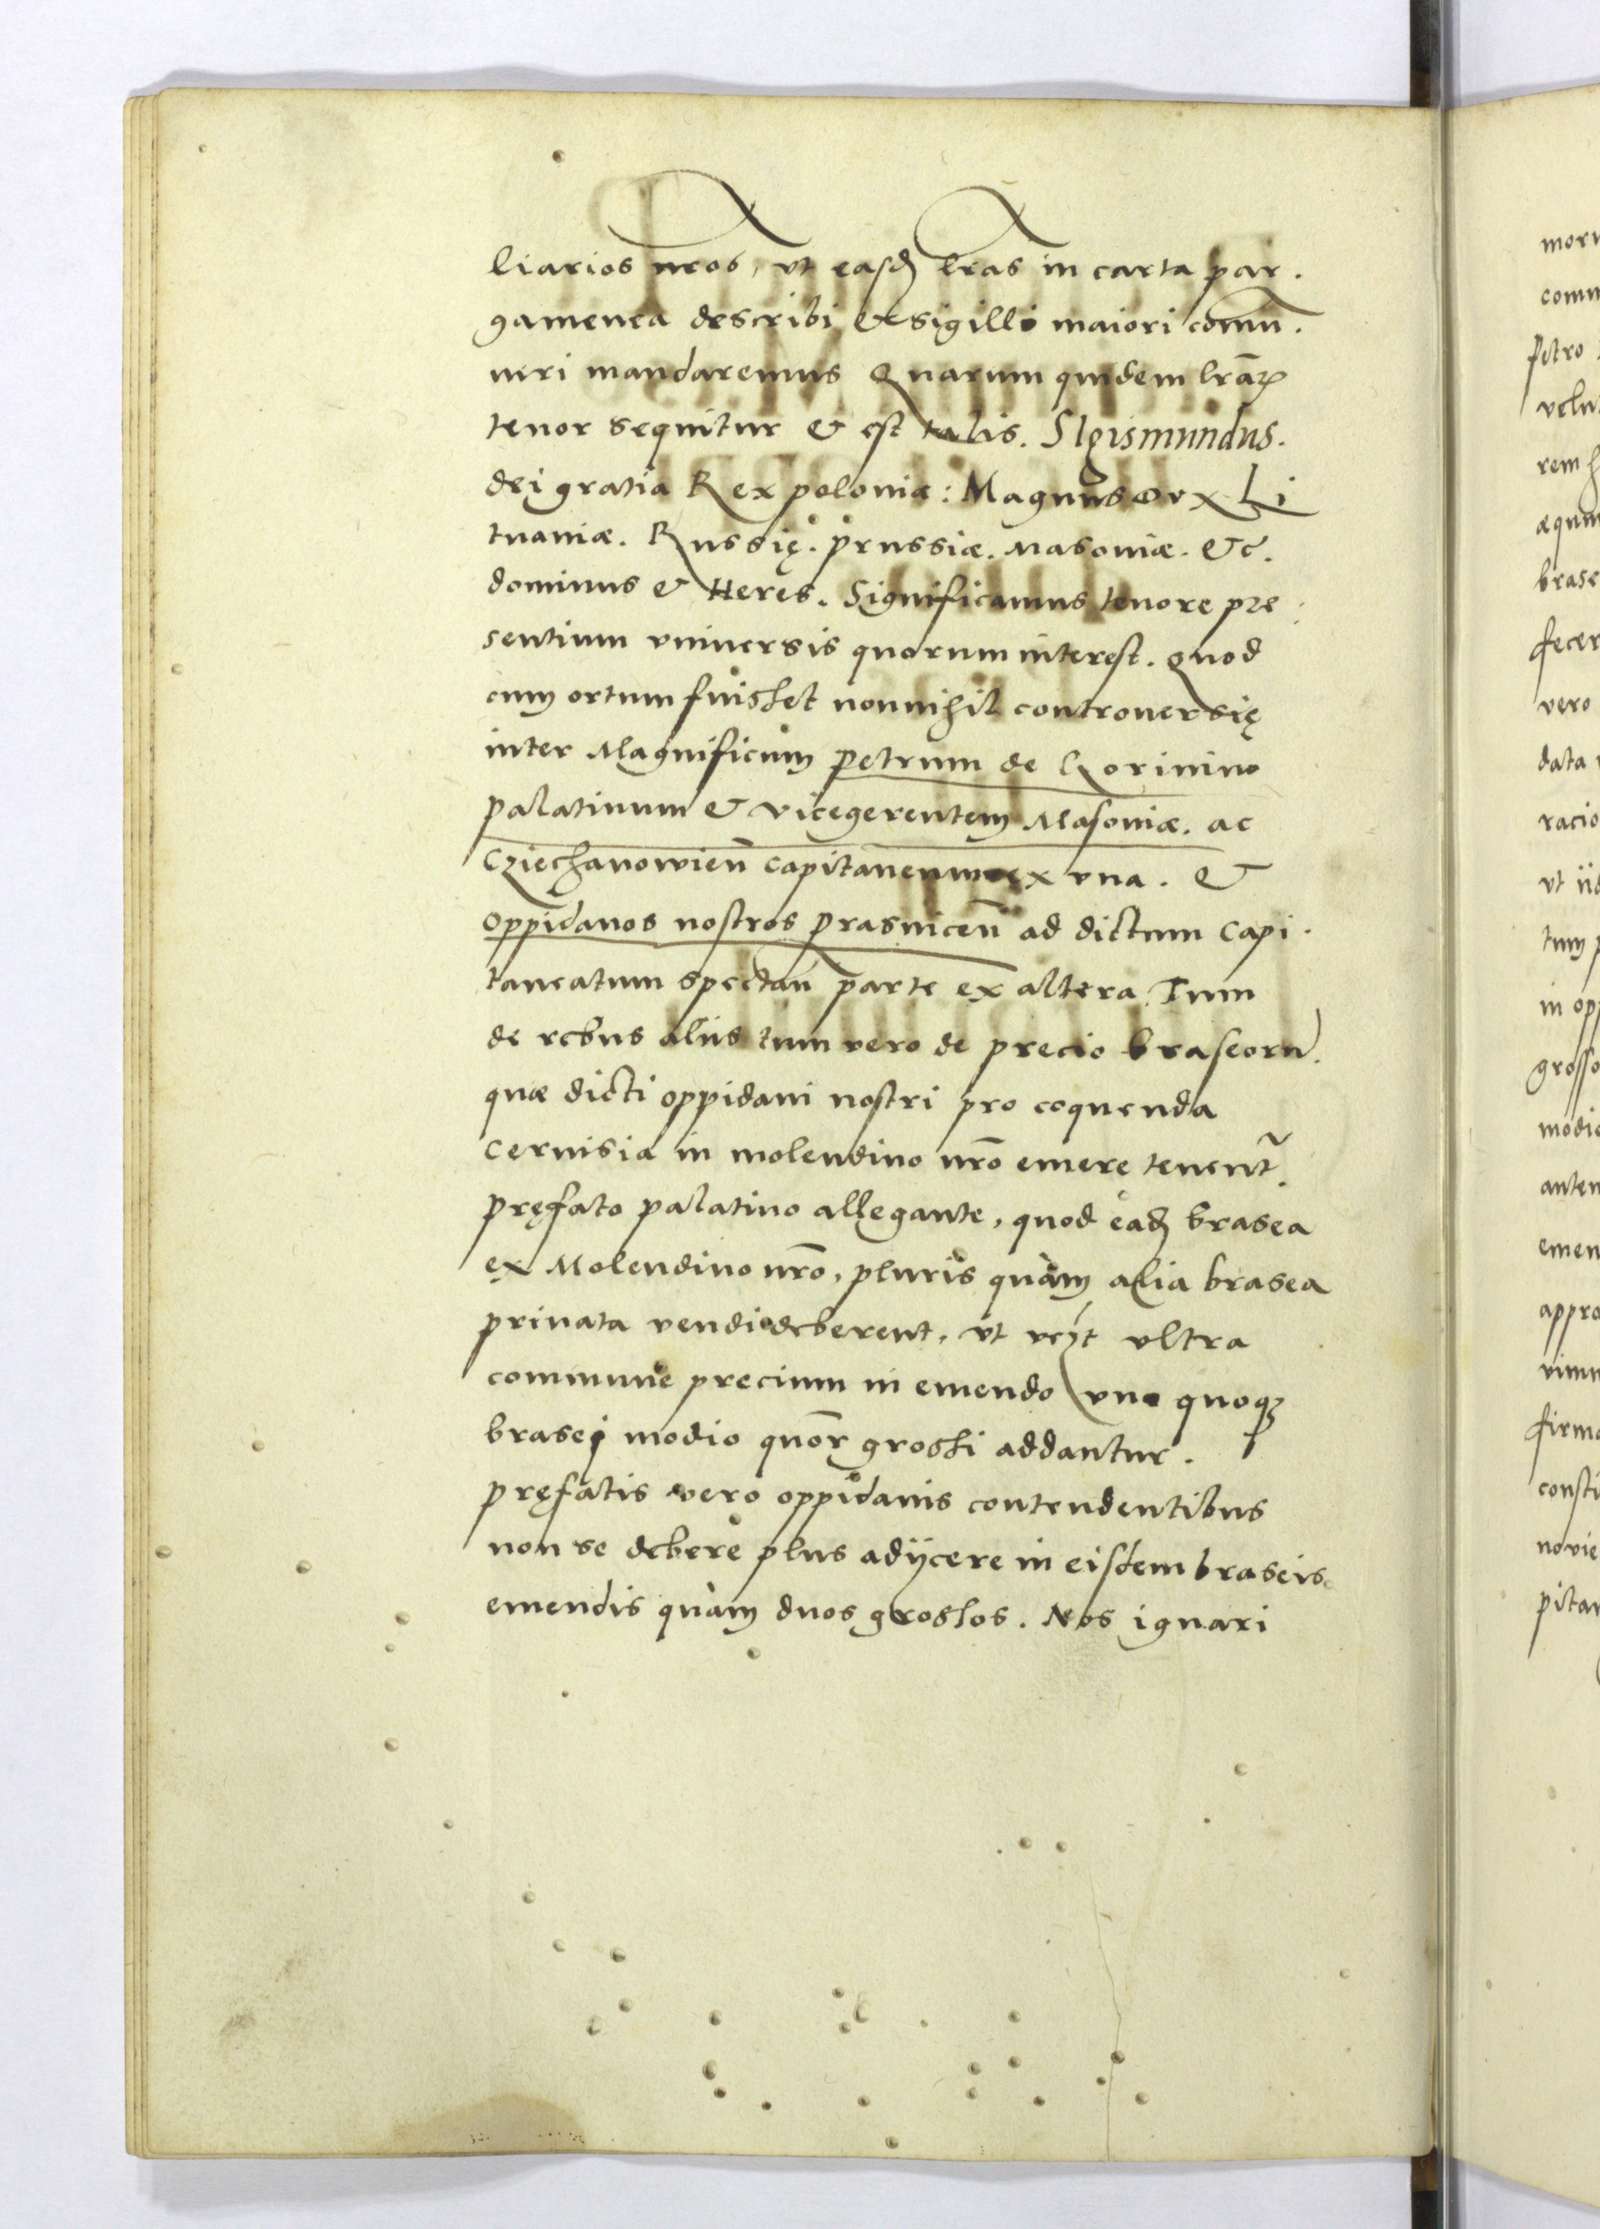 liarios nr̃os, vt easdẽ lr̃as in carta par.
gamenea describi & sigillo maiori com̃u.
niri mandaremus Quarum quidem lr̃aꝝ
tenor sequitur & est talis. SIgismundus.
dei gratia Rex poloniæ: Magnus Dux Li
tuaniæ. Russię. prussiæ. Masoniæ. &c̃.
dominus & Heres. Significamus tenore præ
sentium vniuersis quorum interest. Quod
cum ortum fuisset nonnihil controuersię
inter Magnificum petrum de Gorinino
palatinum & vicegerentem Masoniæ. ac
Cziechanowien̄ capitaneum ex vna. &
oppidanos nostros prasnicen̄ ad dictum capi.
taneatum spectan̄ parte ex altera Tum
de rebus alijs tum vero de precio braseorũ.
quæ dicti oppidani nostri pro coquenda
ceruisia in molendino nr̃o emere tenent᷑.
pręfato palatino allegante, quod eadẽ brasea
ex Molendino nr̃o, pluris quàm alia brasea
priuata vendi deberent, vt vcꝫt vltra
commune precium in emendo vno quoqꝫ
brasei modio quõr grossi addantur.
pręfatis vero oppidanis contendentibus
non se debere plus adijcere in eisdem braseis
emendis quàm duos grossos. Nos ignari
moru
comm
petro
velut
rem
æquu
brase
fecer
vero
data
racio
vt iid
tum
in opp
grosso
modio
antem
emen
appro
nimu
firma
consti
novie
pitan